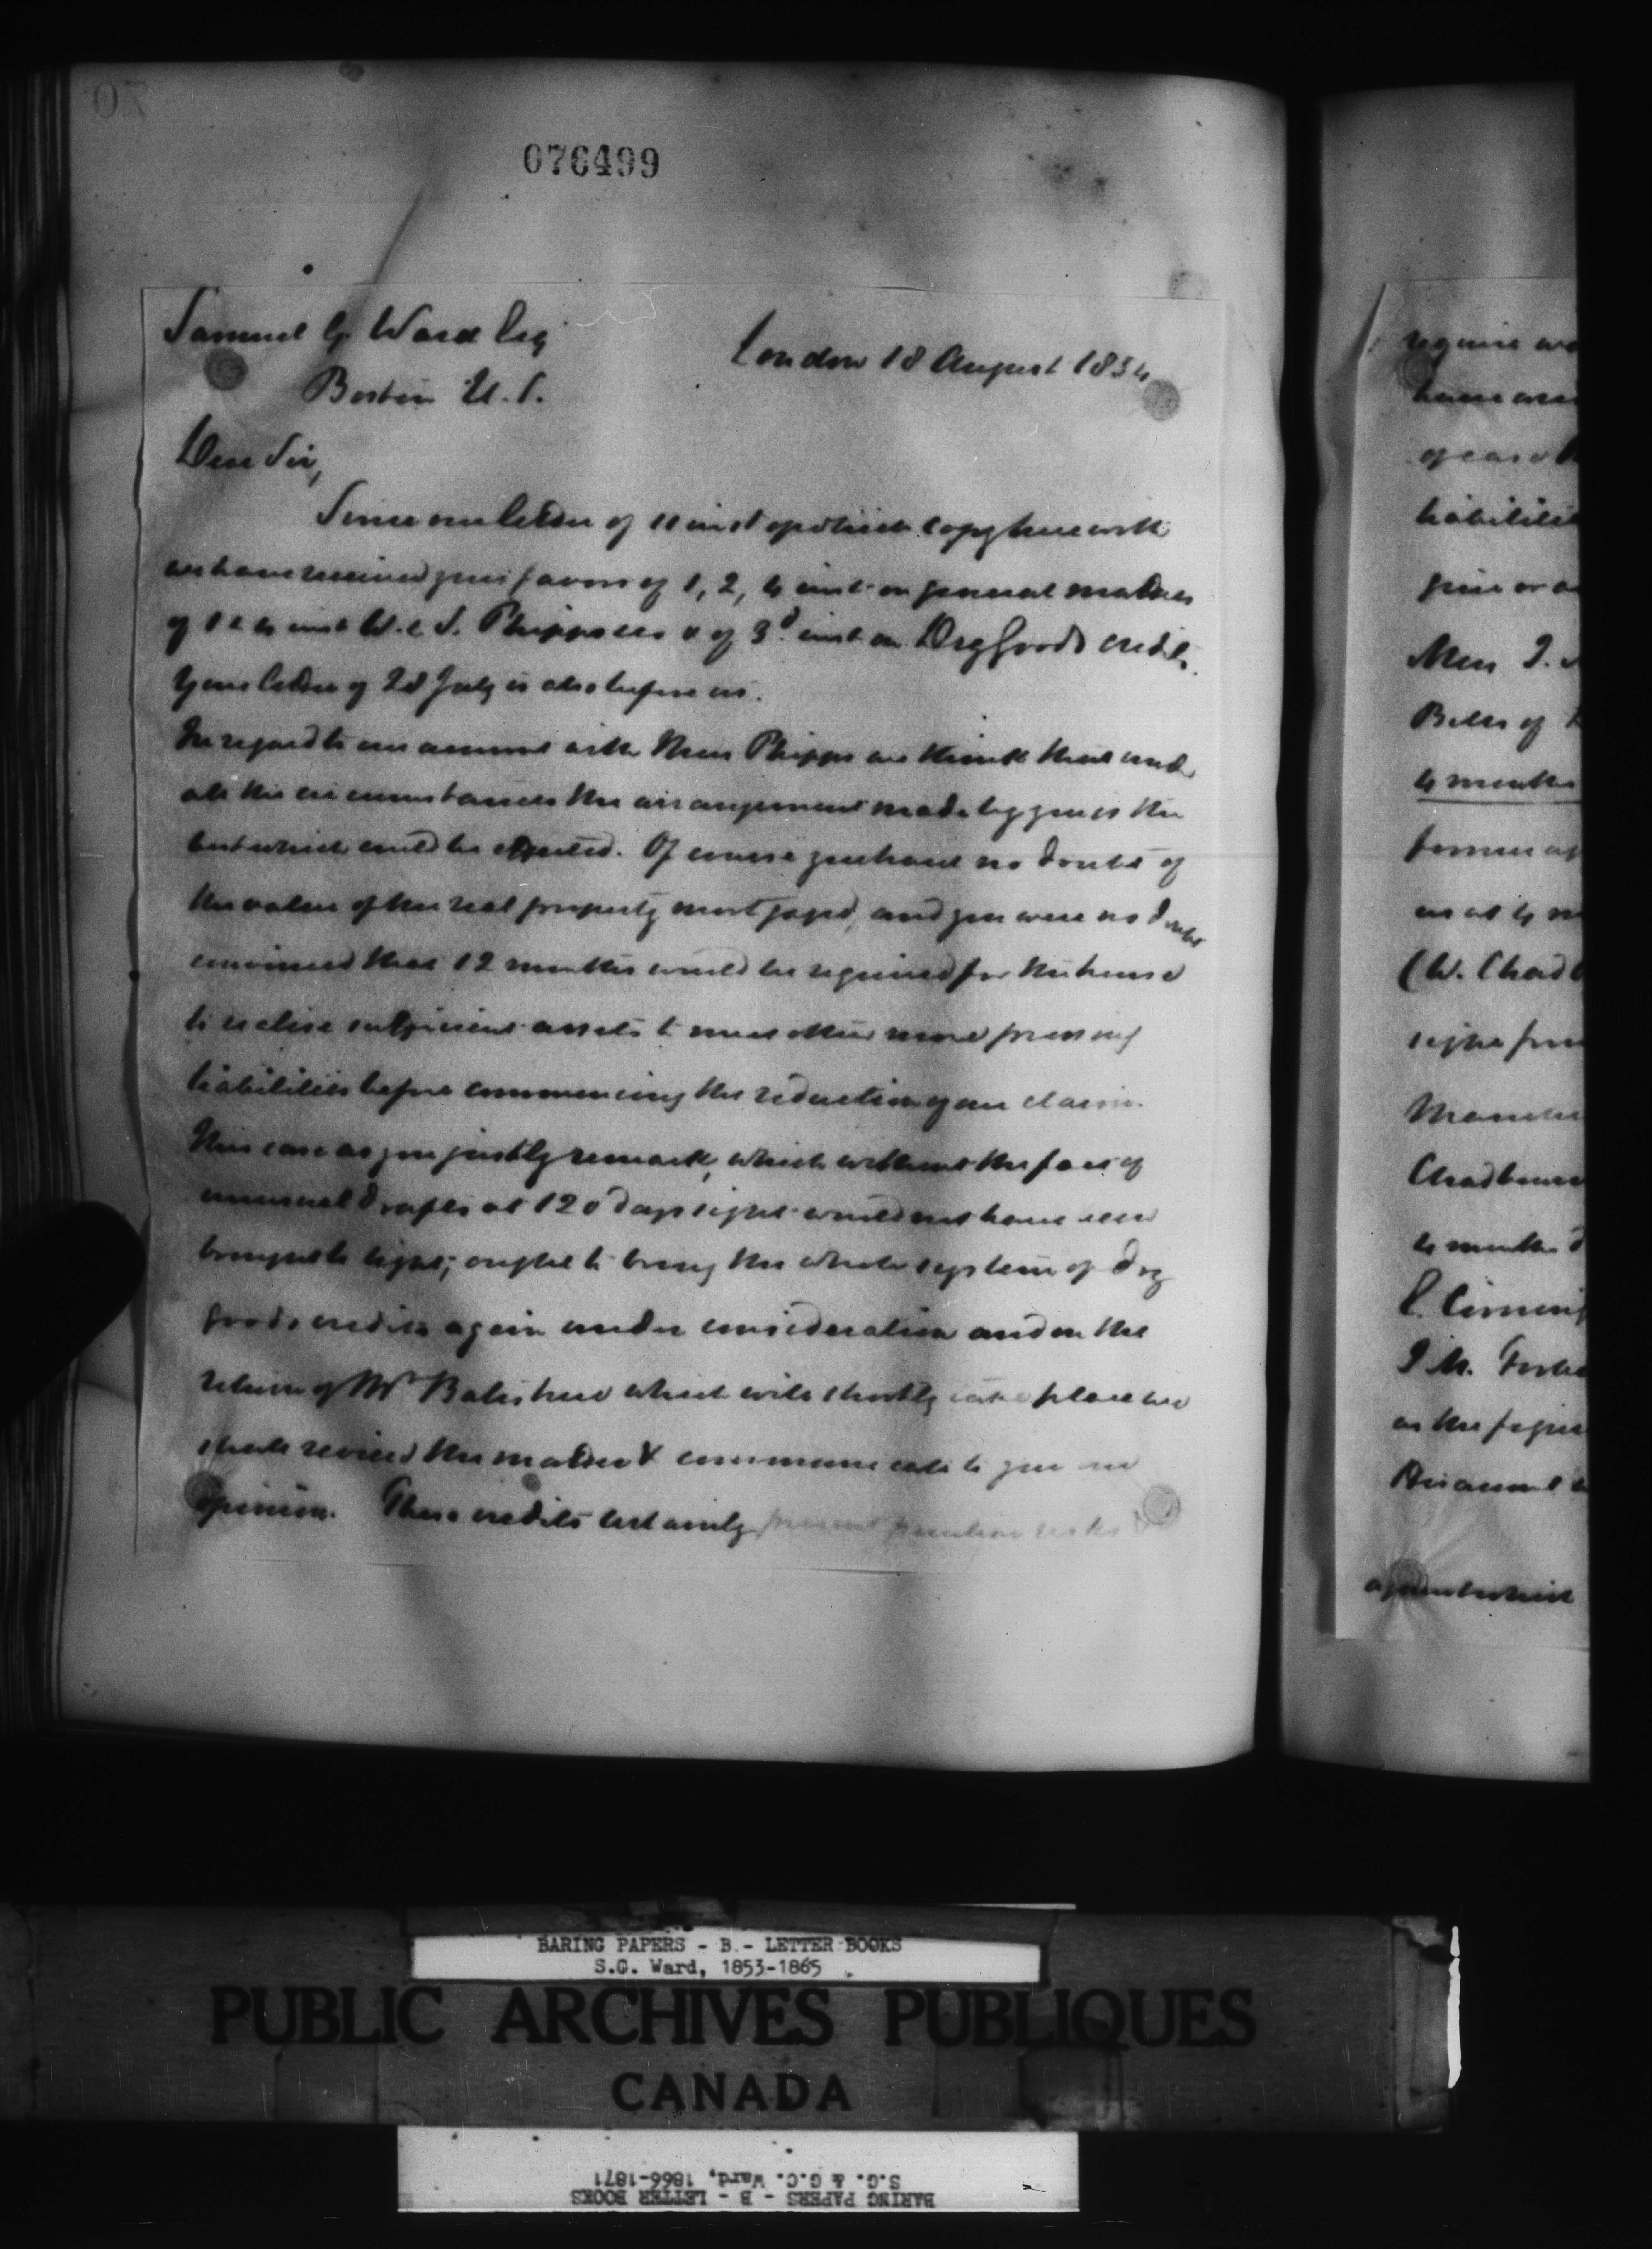 076499
Samuel G. Ward Esq
London 18 August 1854
Boston U.S.
Dear Sir,
Since our letter of 11 inst of which copy herewith
we have received your favors of 1, 2, 4 inst on general matters
of 1 & 4 inst W. & S. Phipps & of 3d inst on Dry Goods credits.
Your letter of 28 July is also before us.
In regard to our account with Mess Phipps we think that under
all the circumstances the arrangement made by you is the
best which could be effected. Of course you have no doubt of
the value of the real property mortgaged, and you were no doubt
convinced that 12 months would be required for the house
to realise sufficient assets to meet other more pressing
liabilities before commencing the reduction of our claim.
This case as you justly remark, which without the fact of
unusual drafts at 120 days sight would not have been
brought to light, ought to bring the whole system of dry
goods credits again under consideration and on the
return of Mr Bates here which will shortly take place we
shall review the matter & communicate to you our
opinion. These credits certainly present peculiar risks &
require
have
liabilities
Mess J.
Bills of
4 months
former
as at 4 m
(W. Chadb
Chadbourne
4 months d
J M. Forbes
as the
His account
BARING PAPERS - B - LETTER BOOKS
S.G. Ward, 1853-1865
PUBLIC ARCHIVES PUBLIQUES
CANADA
BARING PAPERS - B - LETTER BOOKS
S.G. & G.C. Ward, 1866-1871